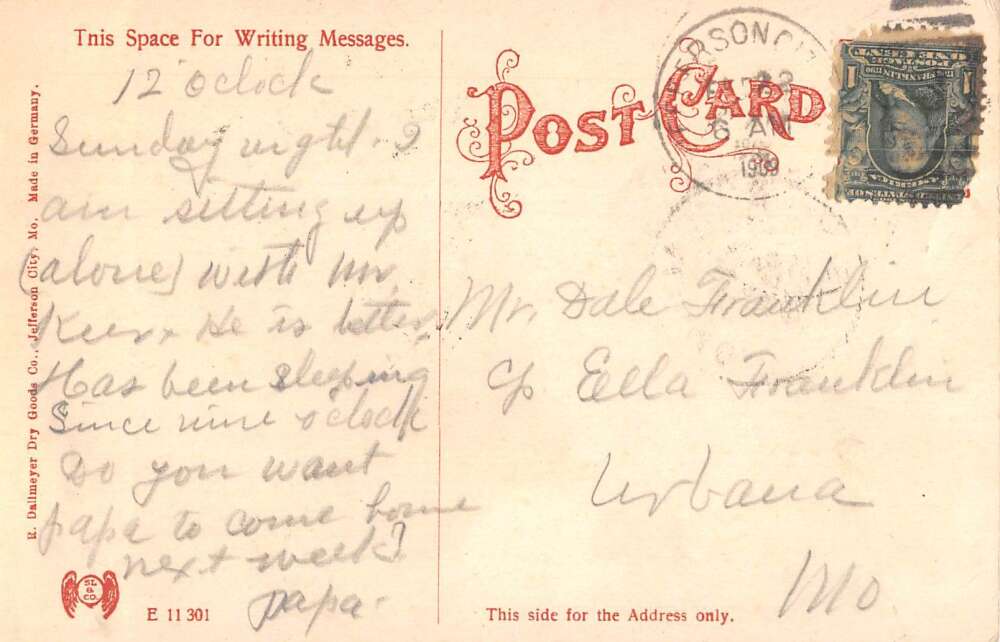 Tnis Space For Writing Messages.
12 oclock
Sunday night. I
am sitting up
(alone) with Mr.
He is better.
Has been sleeping
Since nine oclock
Do you want
papa to come home
next week?
papa.
R. Dallmeyer Dry Goods Co., Jefferson City, Mo. Made in Germany.
SL & CO.
E 11 301
POST CARD
ERSON CI
23
6 AM
1909
1
Mr. Dale Franklin
c/o Eella Franklin
Urbana
Mo
This side for the Address only.